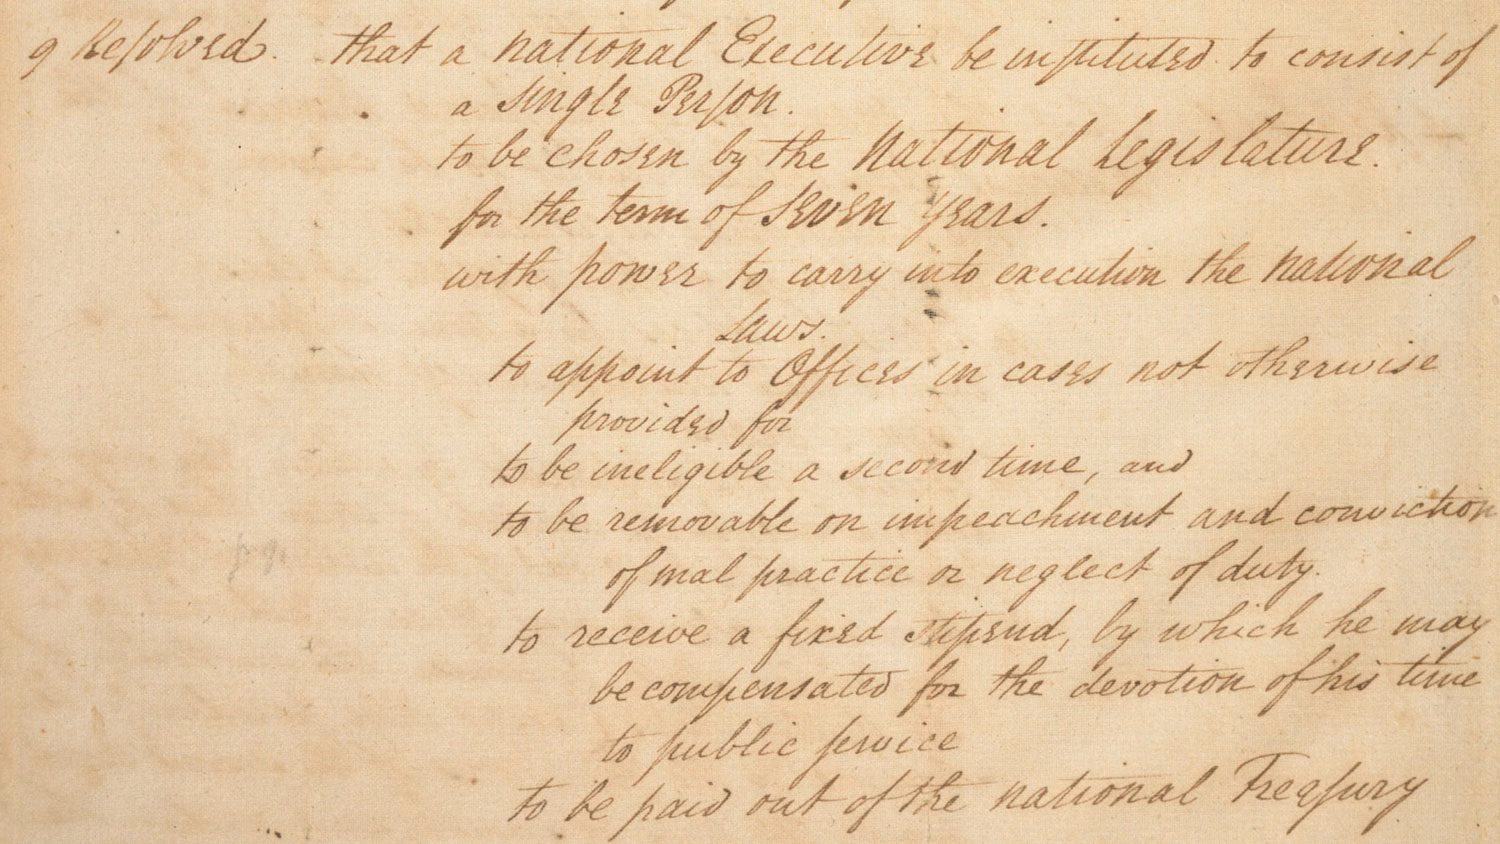 9 Resolved. that a national Executive be instituted to consist of
a Single Person.
to be chosen by the National Legislature.
for the term of Seven years.
with power to carry into execution the national
Laws.
to appoint to Offices in cases not otherwise
provided for
to be ineligible a second time, and
to be removable on impeachment and conviction
of mal practice or neglect of duty.
to receive a fixed stipend, by which he may
be compensated for the devotion of his time
to public service
to be paid out of the national Treasury